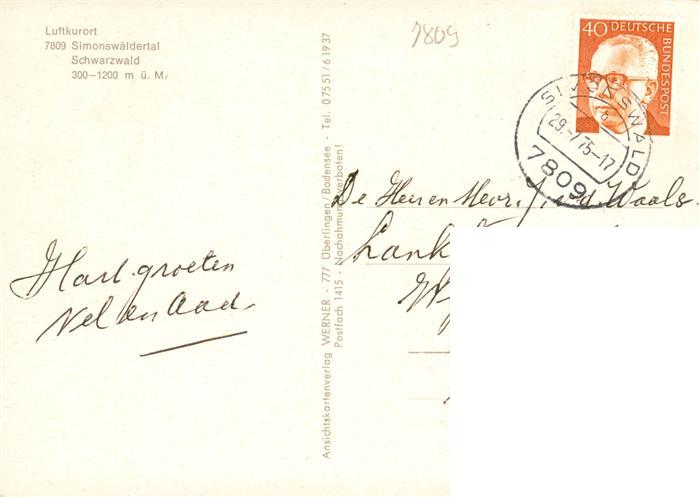 Luftkurort
7809 Simonswäldertal
Schwarzwald
300–1200 m ü. M.
7809
40 DEUTSCHE BUNDESPOST
29.-7.75-17
7809
Ansichtskartenverlag WERNER - 777 Überlingen/Bodensee - Tel. 07551/61937
Postfach 1415 - Nachahmung verboten!
De Heer en Mevr. J. v.d. Waals.
Hart. groeten
Nel en Aad.